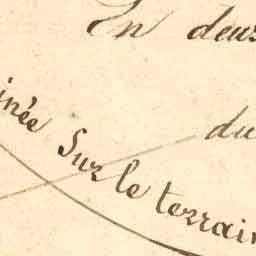 En deux
du
inée Sur le terrain